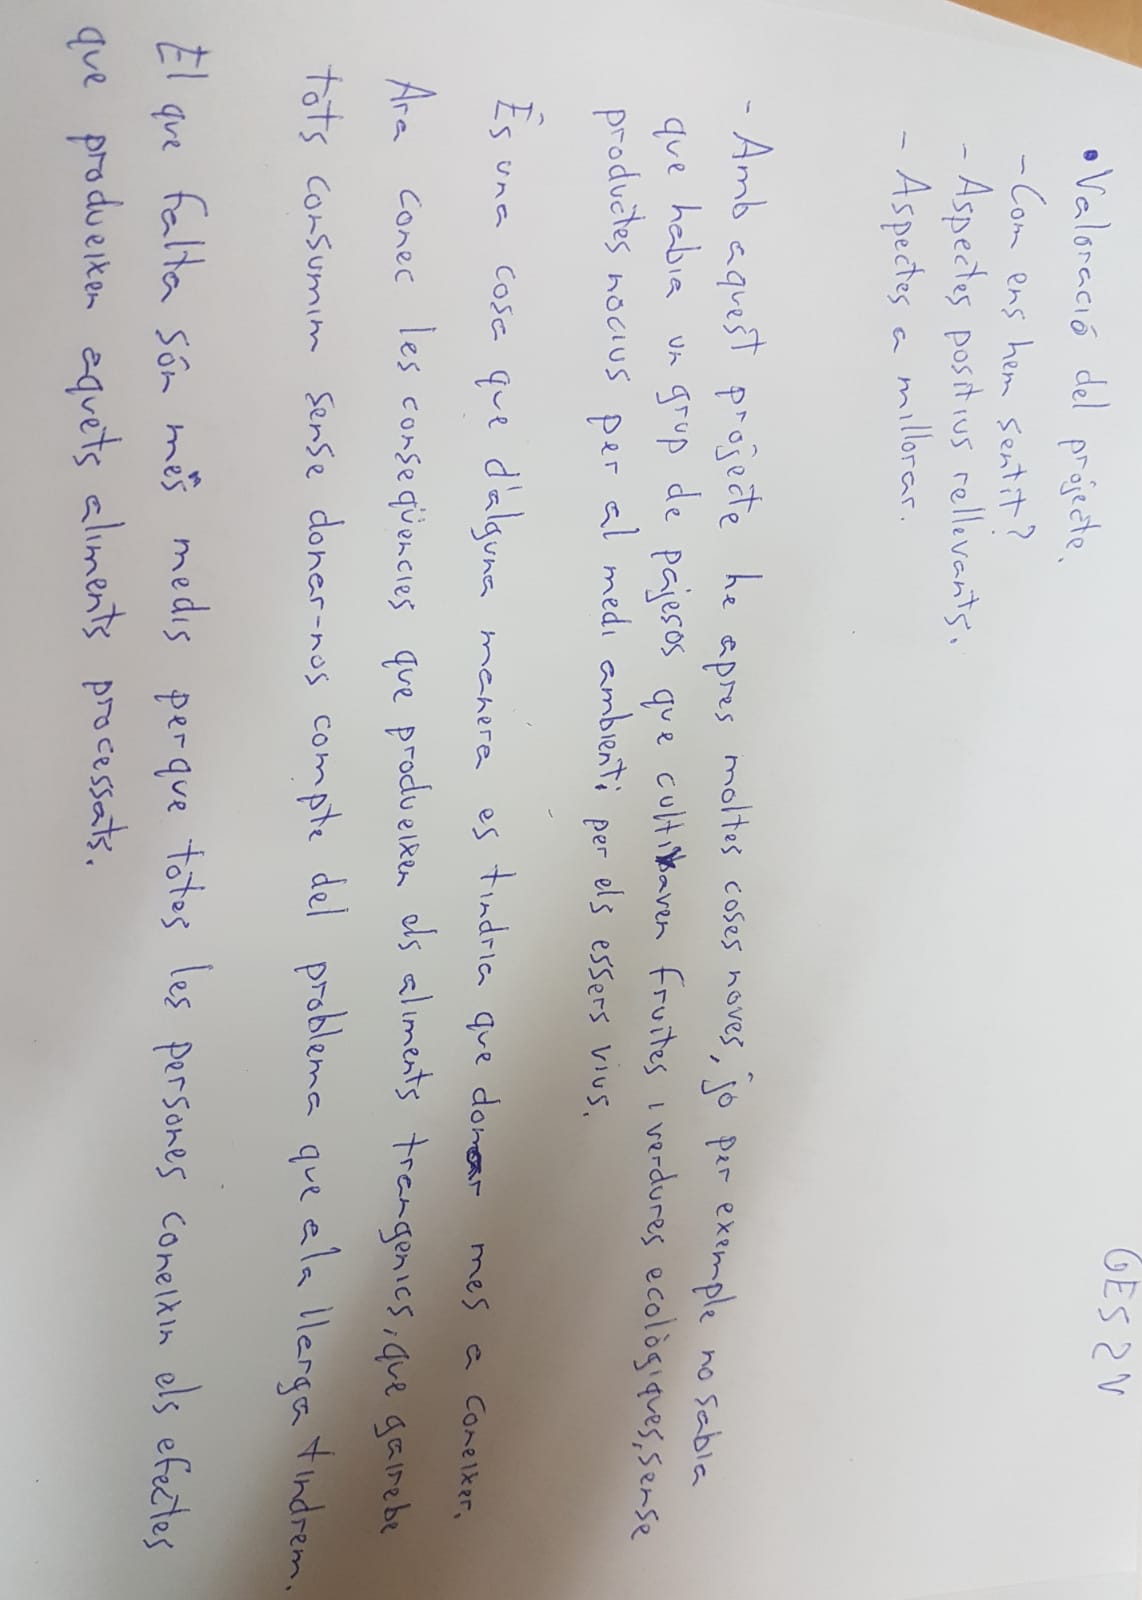 GES 2N
• Valoració del projecte.
- Com ens hem sentit?
- Aspectes positius rellevants.
- Aspectes a millorar.
- Amb aquest projecte he apres moltes coses noves, jo per exemple no sabia
que habia un grup de pajesos que cultibaven fruites i verdures ecològiques, sense
productes nocius per al medi ambient i per els essers vius.
És una cosa que d'alguna manera es tindria que donar mes a coneixer.
Ara conec les conseqüencies que produeixen els aliments trangenics, que gairebe
tots consumim sense donar-nos compte del problema que a la llarga tindrem.
El que falta són més medis perque totes les persones coneixin els efectes
que produeixen aquets aliments processats.